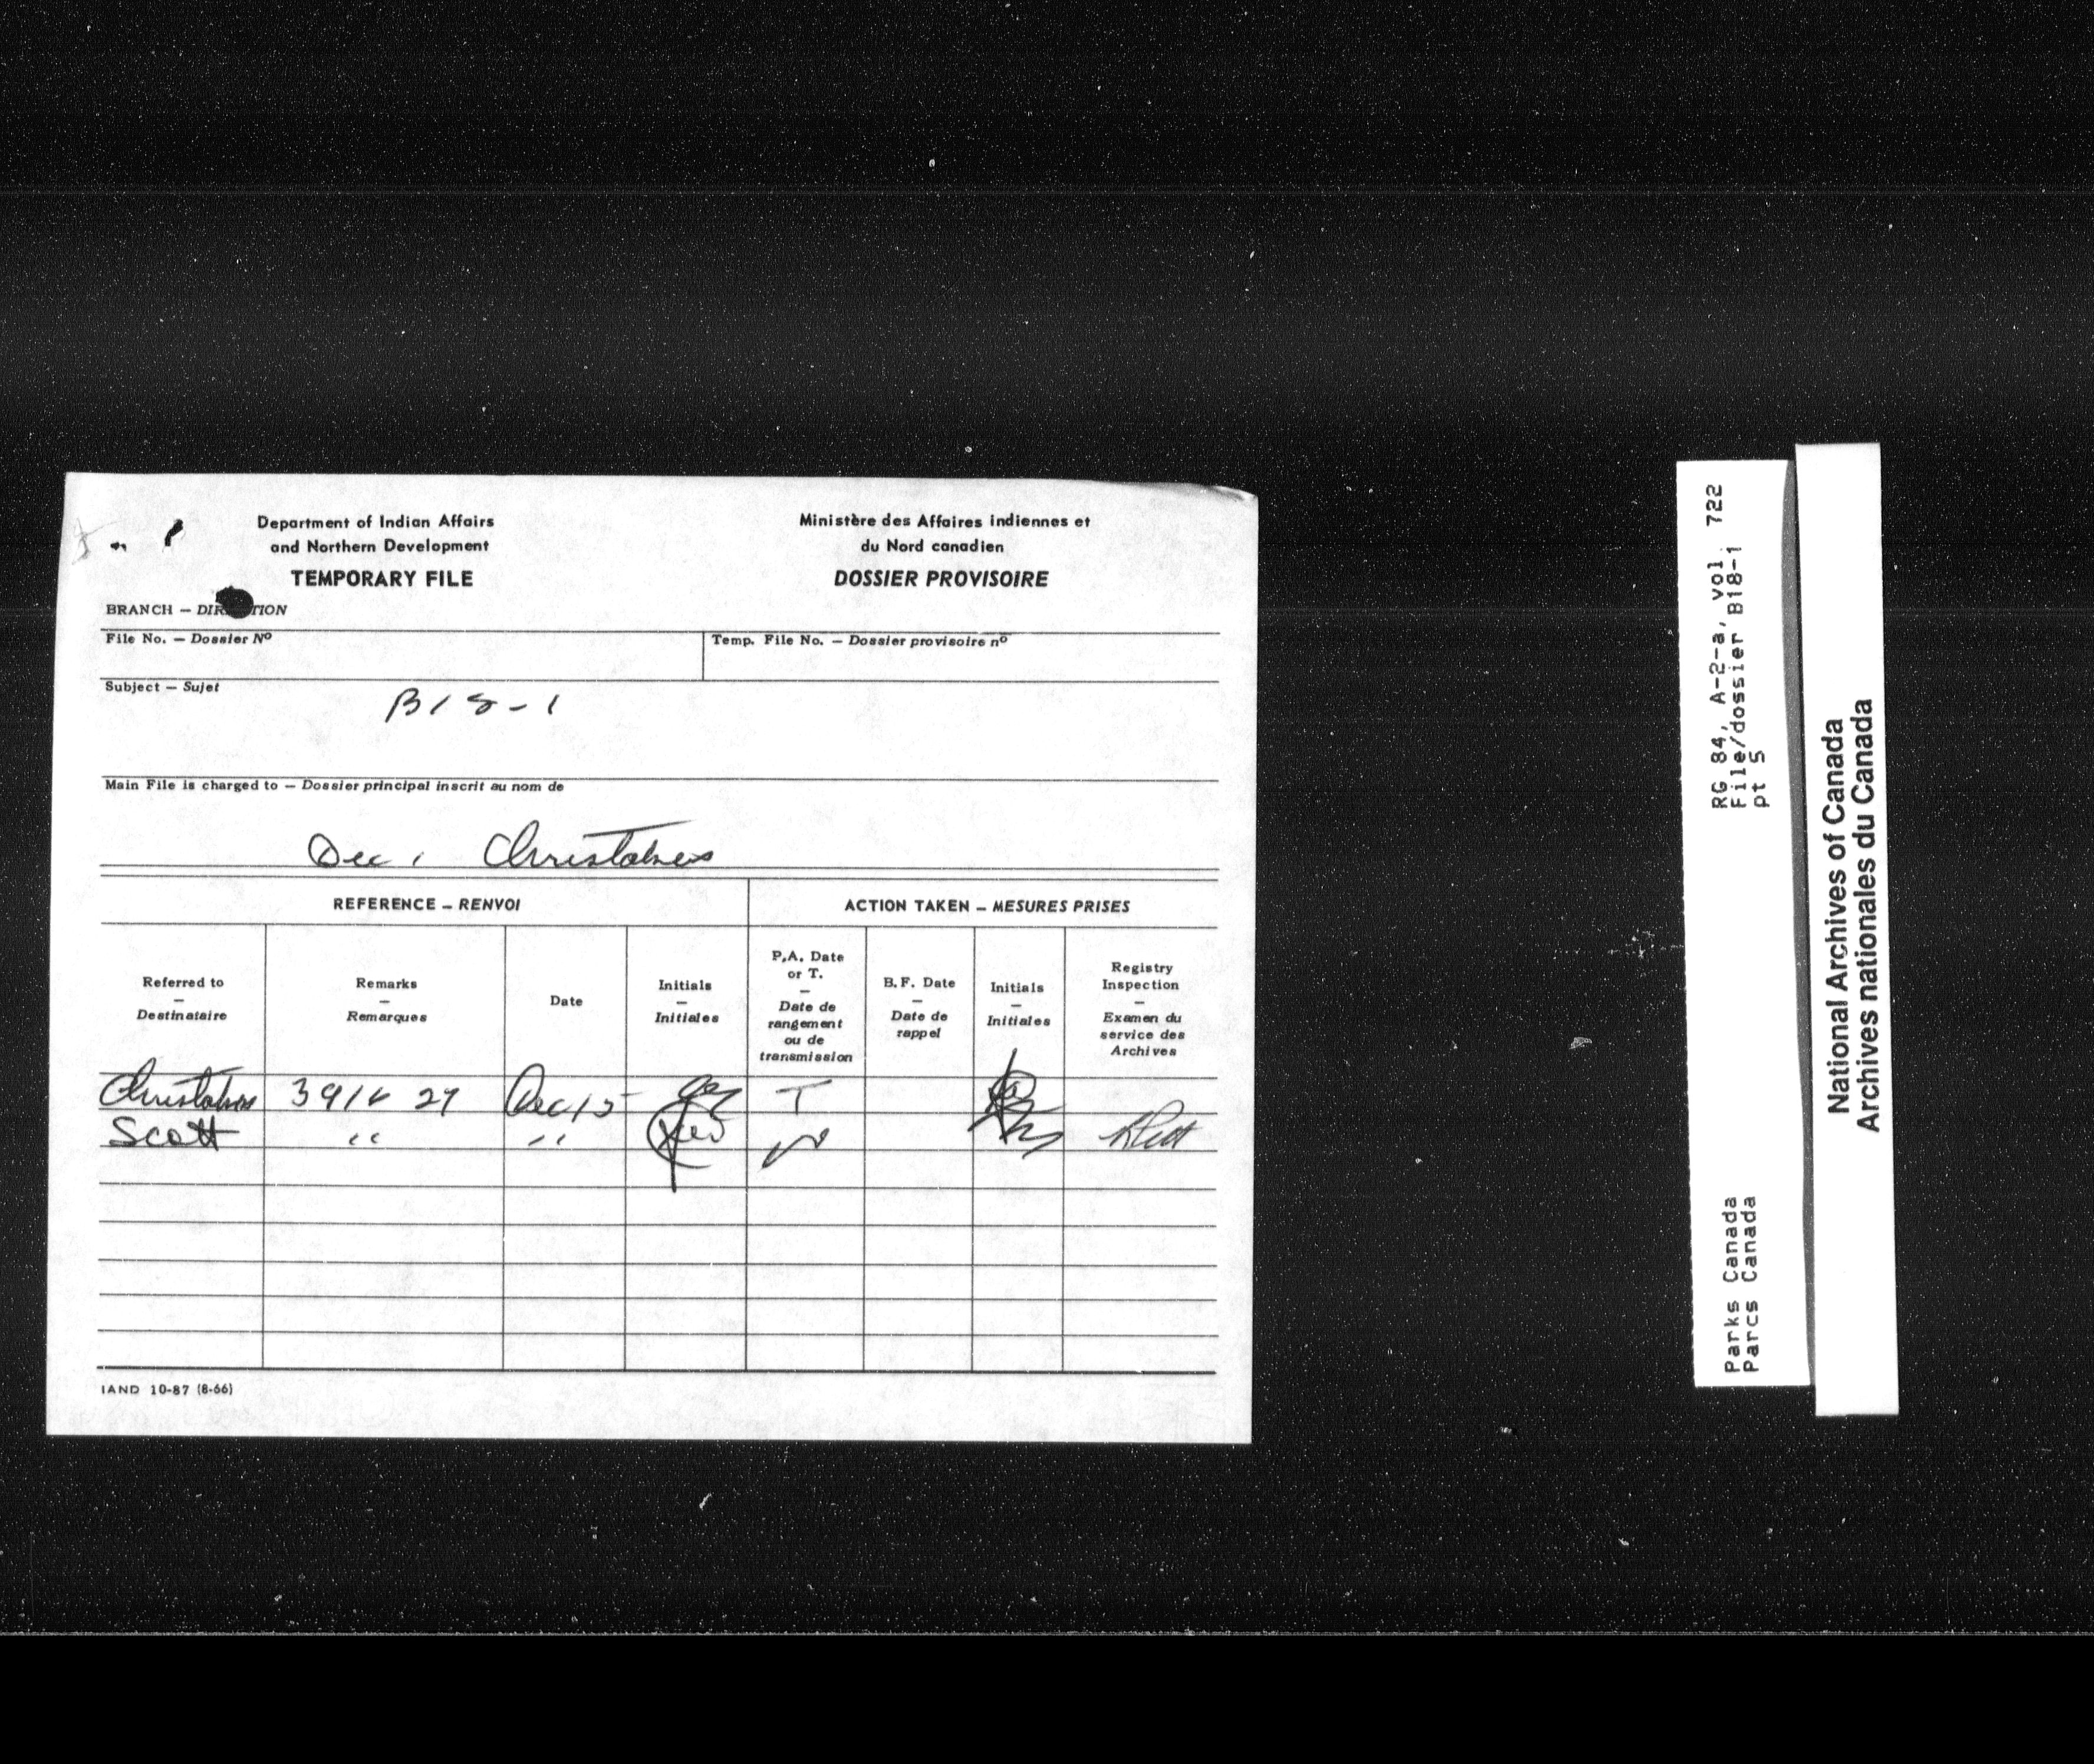 Department of Indian Affairs
and Northern Development
TEMPORARY FILE
Ministère des Affaires indiennes et
du Nord canadien
DOSSIER PROVISOIRE
BRANCH – DIRECTION
File No. – Dossier Nº
Temp. File No. – Dossier provisoire nº
Subject – Sujet
B18-1
Main File is charged to – Dossier principal inscrit au nom de
Dec.
REFERENCE – RENVOI
ACTION TAKEN – MESURES PRISES
Referred to
–
Destinataire
Remarks
–
Remarques
Date
Initials
–
Initiales
P.A. Date
or T.
–
Date de
rangement
ou de
transmission
B.F. Date
–
Date de
rappel
Initials
–
Initiales
Registry
Inspection
–
Examen du
service des
Archives
Dec 15 T
Scott " "
IAND 10-87 (8-66)
RG 84, A-2-a, vol. 722
File/dossier B18-1
pt 5
Parks Canada
Parcs Canada
National Archives of Canada
Archives nationales du Canada